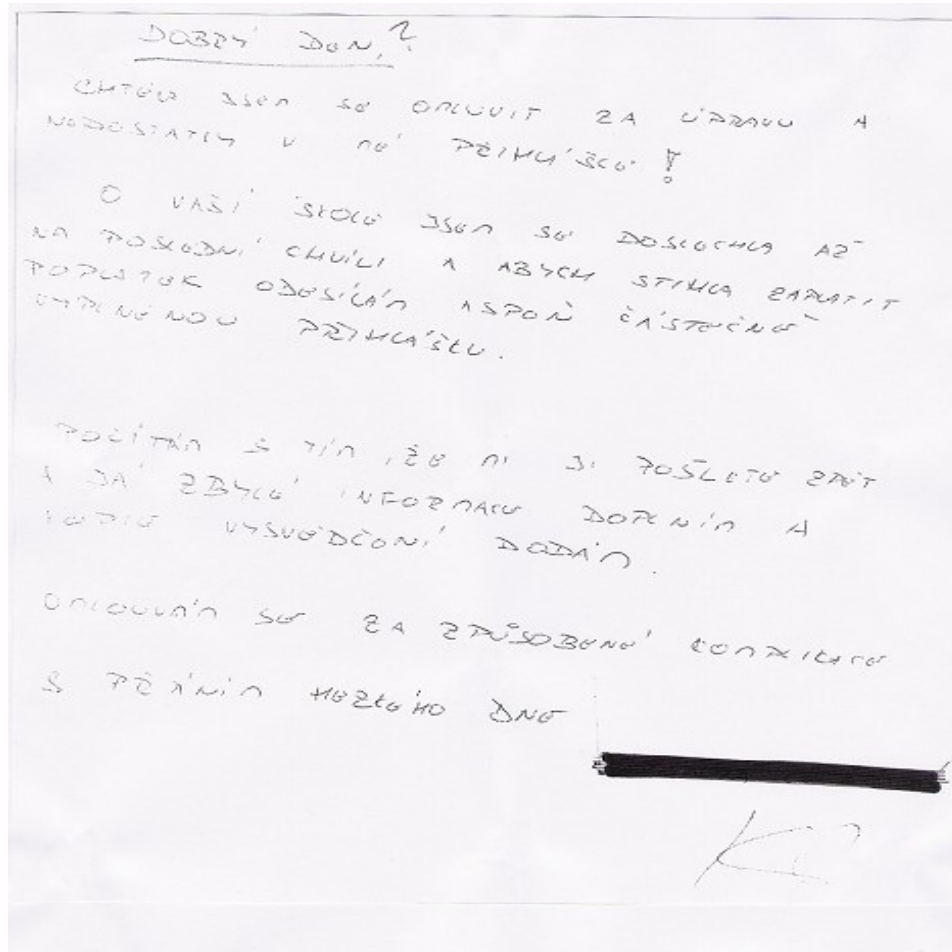 DOBRÝ DEN,?
CHTĚLA JSEM SE OMLUVIT ZA ÚPRAVU A
NEDOSTATKY V MÉ PŘIHLÁŠCE!
O VAŠÍ ŠKOLE JSEM SE DOSLECHLA AŽ
NA POSLEDNÍ CHVÍLI A ABYCH STIHLA ZAPLATIT
POPLATEK ODESÍLÁM ASPOŇ ČÁSTEČNĚ
VYPLNĚNOU PŘIHLÁŠKU.
POČÍTÁM S TÍM, ŽE MI JI POŠLETE ZPĚT
A JÁ ZBYLÉ INFORMACE DOPLNÍM A
KOPIE VYSVĚDČENÍ DODÁM.
OMLOUVÁM SE ZA ZPŮSOBENÉ KOMPLIKACE
S PŘÁNÍM HEZKÉHO DNE